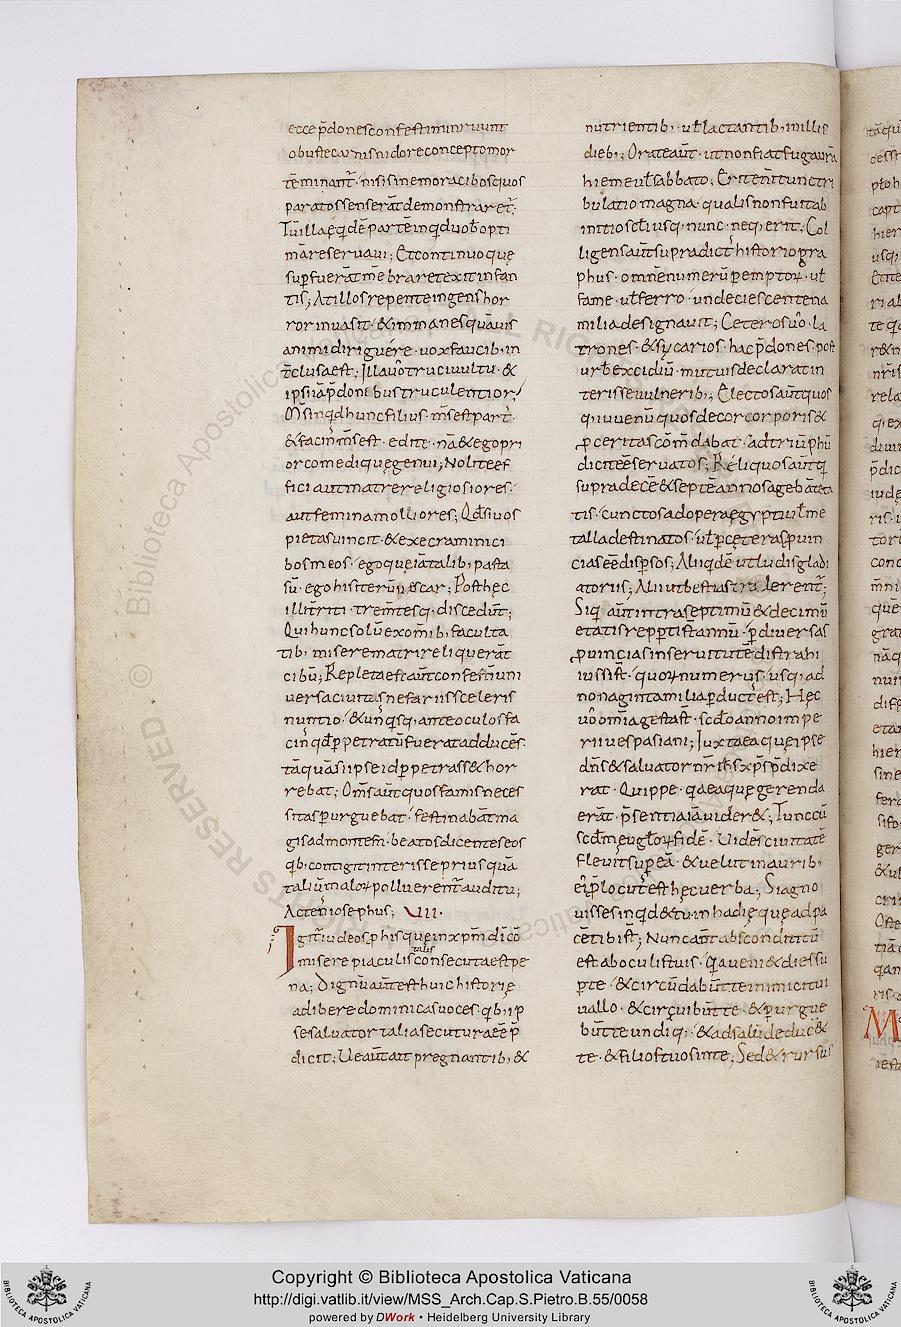 ecce p̄donesconfestiminruunt
obustecarnisnidoreconceptomor
tēminant̄· nisisinemoracibosquos
paratossenserat̄demonstraret̄·
Tūillaeq̇dē partēinq̇duobopti
māreservavi; Etcontinuoque
sup̄fuerāt mēbraretexitinfan
tis; Atillosrepenteingenshor
rorinvasit· &immanesquāvis
animidiriguēre· voxfaucib; in
t̄clusaest; Illav̄otrucivultu· &
ipsiap̄donibustruculentior
Ōsinq̇dhuncfilius· m̄sestpart̄·
&facin̄m̄sest· edite· nā&egopri
orcomediquęgenui; Noliteef
ficiautmatrereligiosiores·
autfeminamolliores; Qđsivos
pietasvincit· &execraminici
bosmeos· egoqueiātalib; pasta
sū· egohisiterū vescar; Posthęc
illit̄riti· trem̄tesq; discedūt;
Quihuncsolū exomīb; faculta
tib; miserematrireliquerāt
cibū; Repletaestaūtconfestiūni
versacivitasnefariisceleris
nuntio· &unq̇sq; anteoculosfa
cinq̇dp̄petratūfueratadducēs·
tāquāsiipseidp̄petrass&hor
rebat; Om̄saūtquosfamisneces
sitasp̄urguebat· festinabātma
gisadmortem· beatosdicenteseos
qb; contigitinterisepriusquā
taliū maloꝝpolluerent̄auditu;
Acteniosephus; VII·
Igit̄iudeosp̄hisquęinxp̄m̄dicō
miserepiaculis talis consecutaestpe
na; Dignūaūtesthuichistorię
adiberedominicasvoces· qb; ip
sesalvatortaliasecuturaēē p̄
dicit; Veaūtait pregnantib; &
nutrientib; · ut̄lactantib; inillis
dieb; Orateaūt· utnonfiatfugavr̄a
hiemeut̄sabbato; Eritenī tunctri
bulatiomagna· qualisnonfuitab
initiosc̄liusq; nunc· neq; erit; Col
ligensaūtsupradict; historiogra
phus· omnēnumerūp̄emptoꝝ· ut̄
fame· ut̄ferro· undeciescentena
miliadesignavit; Ceterosv̄o· la
trones· &sycarios· hacp̄dones· post
urb̄excidiū· mutuisdeclaratin
terissevulnerib; Electosaūtquos
q; iuvenū quosdecorcorporis&
ꝓceritascōmdabat· adtriūphū
diciteēservatos; Reliquosaūtq
supradecē&septēannosagebāt etā
tis· cunctosadoperaęgyptiut̄me
talladestinatos· ut̄p̄cęterasp̄vin
ciaseēdisp̄sos; Aliiq̇dē utludisgladi
atoriis; Aliiutbestiistraderent̄;
Siq; aūtintraseptimū&decimū
etatisreꝑtistannū· p̄diversas
ꝓvinciasinservitutēdistrahi
iussist̄· quoꝝnumerus· usq; ad
nonagintamiliap̄ductest; Hęc
v̄oom̄iagestast̄· sc̄doannoimpe
riivespasiani; Iuxtaeaqueipse
dn̄s&salvatornr̄ ih̄sxp̄sp̄dixe
rat· Quippe· qaeaquęgerenda
erāt· p̄sentiaiāvider&; Tunccū
scd̄m̄evglioꝝfidē· Vidēscivitatē
flevitsup̄eā· &velutinaurib;
ei; p̄locutesthęcverba; Siagno
vissesinq̇d&tuinhadięquęadpa
cētibist̄; Nuncaūt absconditū
estaboculistuis· q̇aveni&diessu
p̄te· &circūdabūtteinimicitui
vallo· &circuibūtte· &p̄urgue
būtteundiq; · &adsolūdeduc&
te· &filiostuosinte; Sed&rursus
Copyright © Biblioteca Apostolica Vaticana
http://digi.vatlib.it/view/MSS_Arch.Cap.S.Pietro.B.55/0058
powered by DWork • Heidelberg University Library